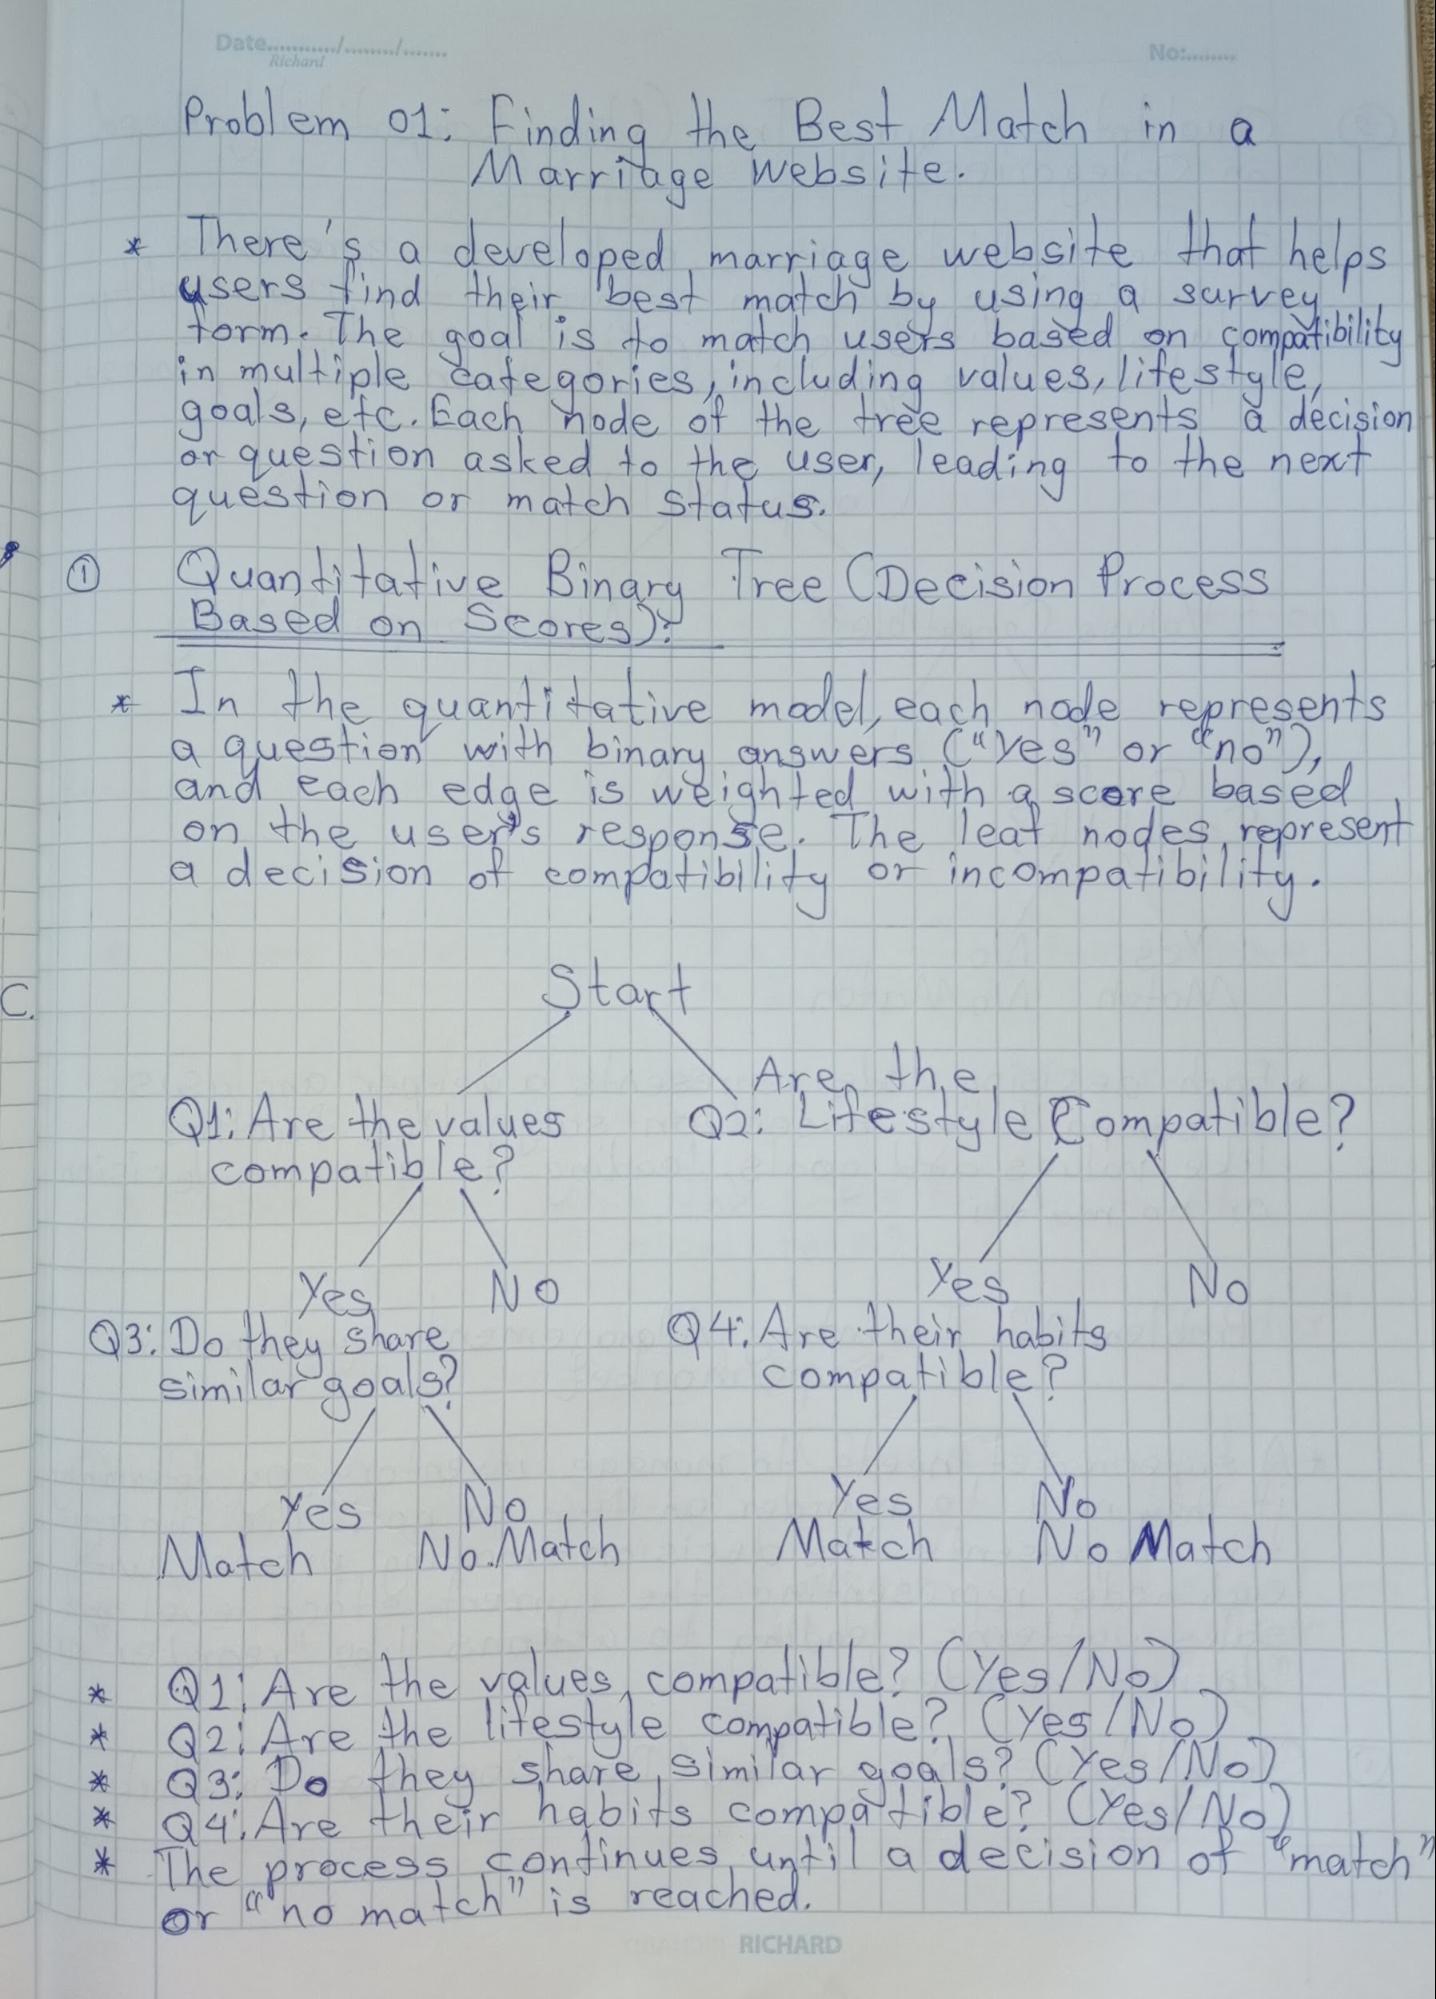 Date.........../......../.......
Richard
No:........
Problem 01: Finding the Best Match in a
Marriage Website.
* There's a developed marriage website that helps
users find their best match by using a survey
form. The goal is to match users based on compatibility
in multiple categories, including values, lifestyle,
goals, etc. Each node of the tree represents a decision
or question asked to the user, leading to the next
question or match status.
① Quantitative Binary Tree (Decision Process
Based on Scores):
* In the quantitative model, each node represents
a question with binary answers ("Yes" or "no"),
and each edge is weighted with a score based
on the user's response. The leaf nodes represent
a decision of compatibility or incompatibility.
C.
Start
Q1: Are the values
compatible?
Are the
Q2: Lifestyle Compatible?
Yes No
Yes No
Q3: Do they share
similar goals?
Q4: Are their habits
compatible?
Yes No
Match No Match
Yes No
Match No Match
* Q1: Are the values compatible? (Yes/No)
* Q2: Are the lifestyle compatible? (Yes/No)
* Q3: Do they share similar goals? (Yes/No)
* Q4: Are their habits compatible? (Yes/No)
* The process continues until a decision of "match"
or "no match" is reached.
RICHARD